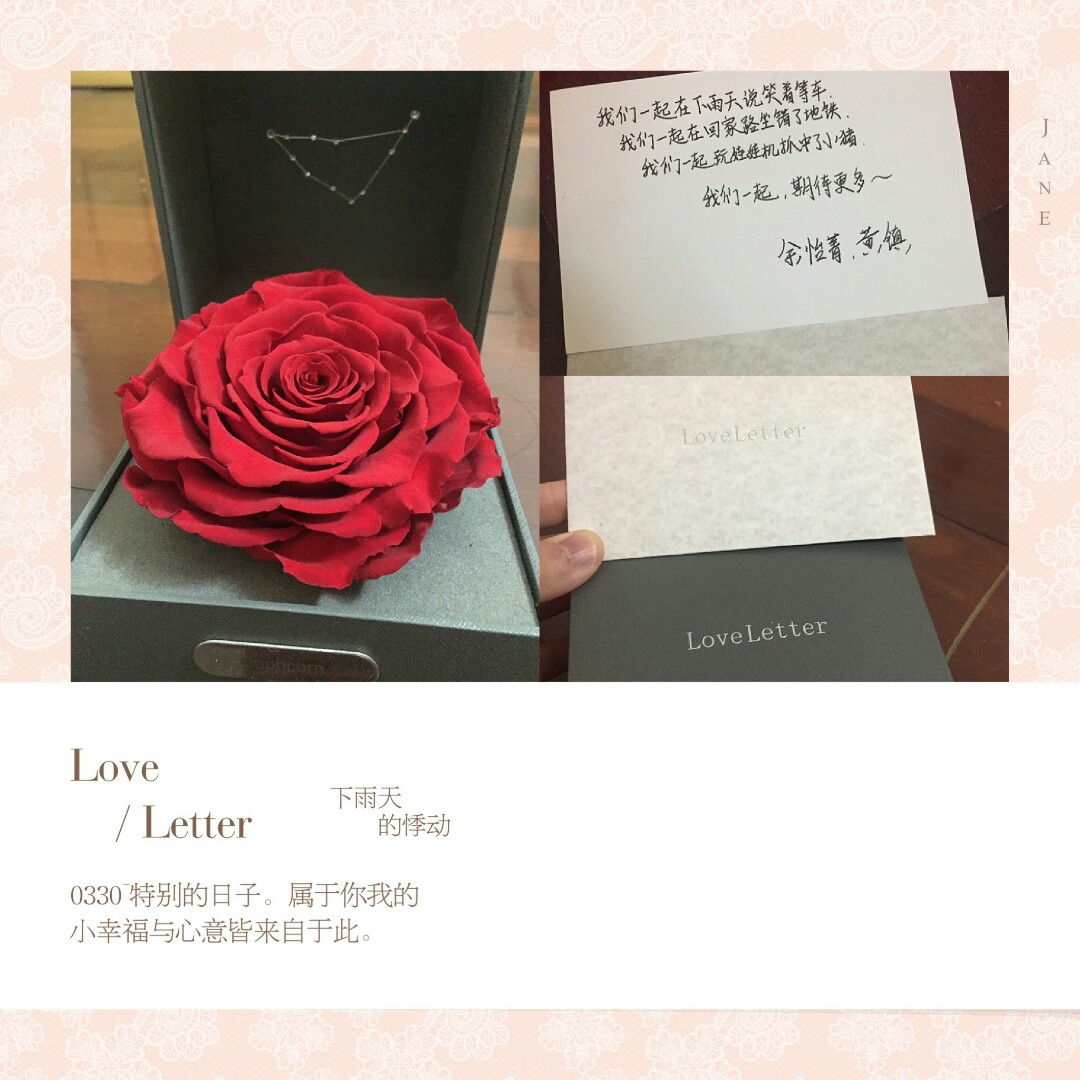 我们一起在下雨天说笑着等车.
我们一起在回家路坐错了地铁.
我们一起玩娃娃机抓中了小猪.
我们一起,期待更多～
余怡菁,黄镇
JANE
LoveLetter
LoveLetter
Love
/ Letter
下雨天
的悸动
0330‾特别的日子。属于你我的
小幸福与心意皆来自于此。